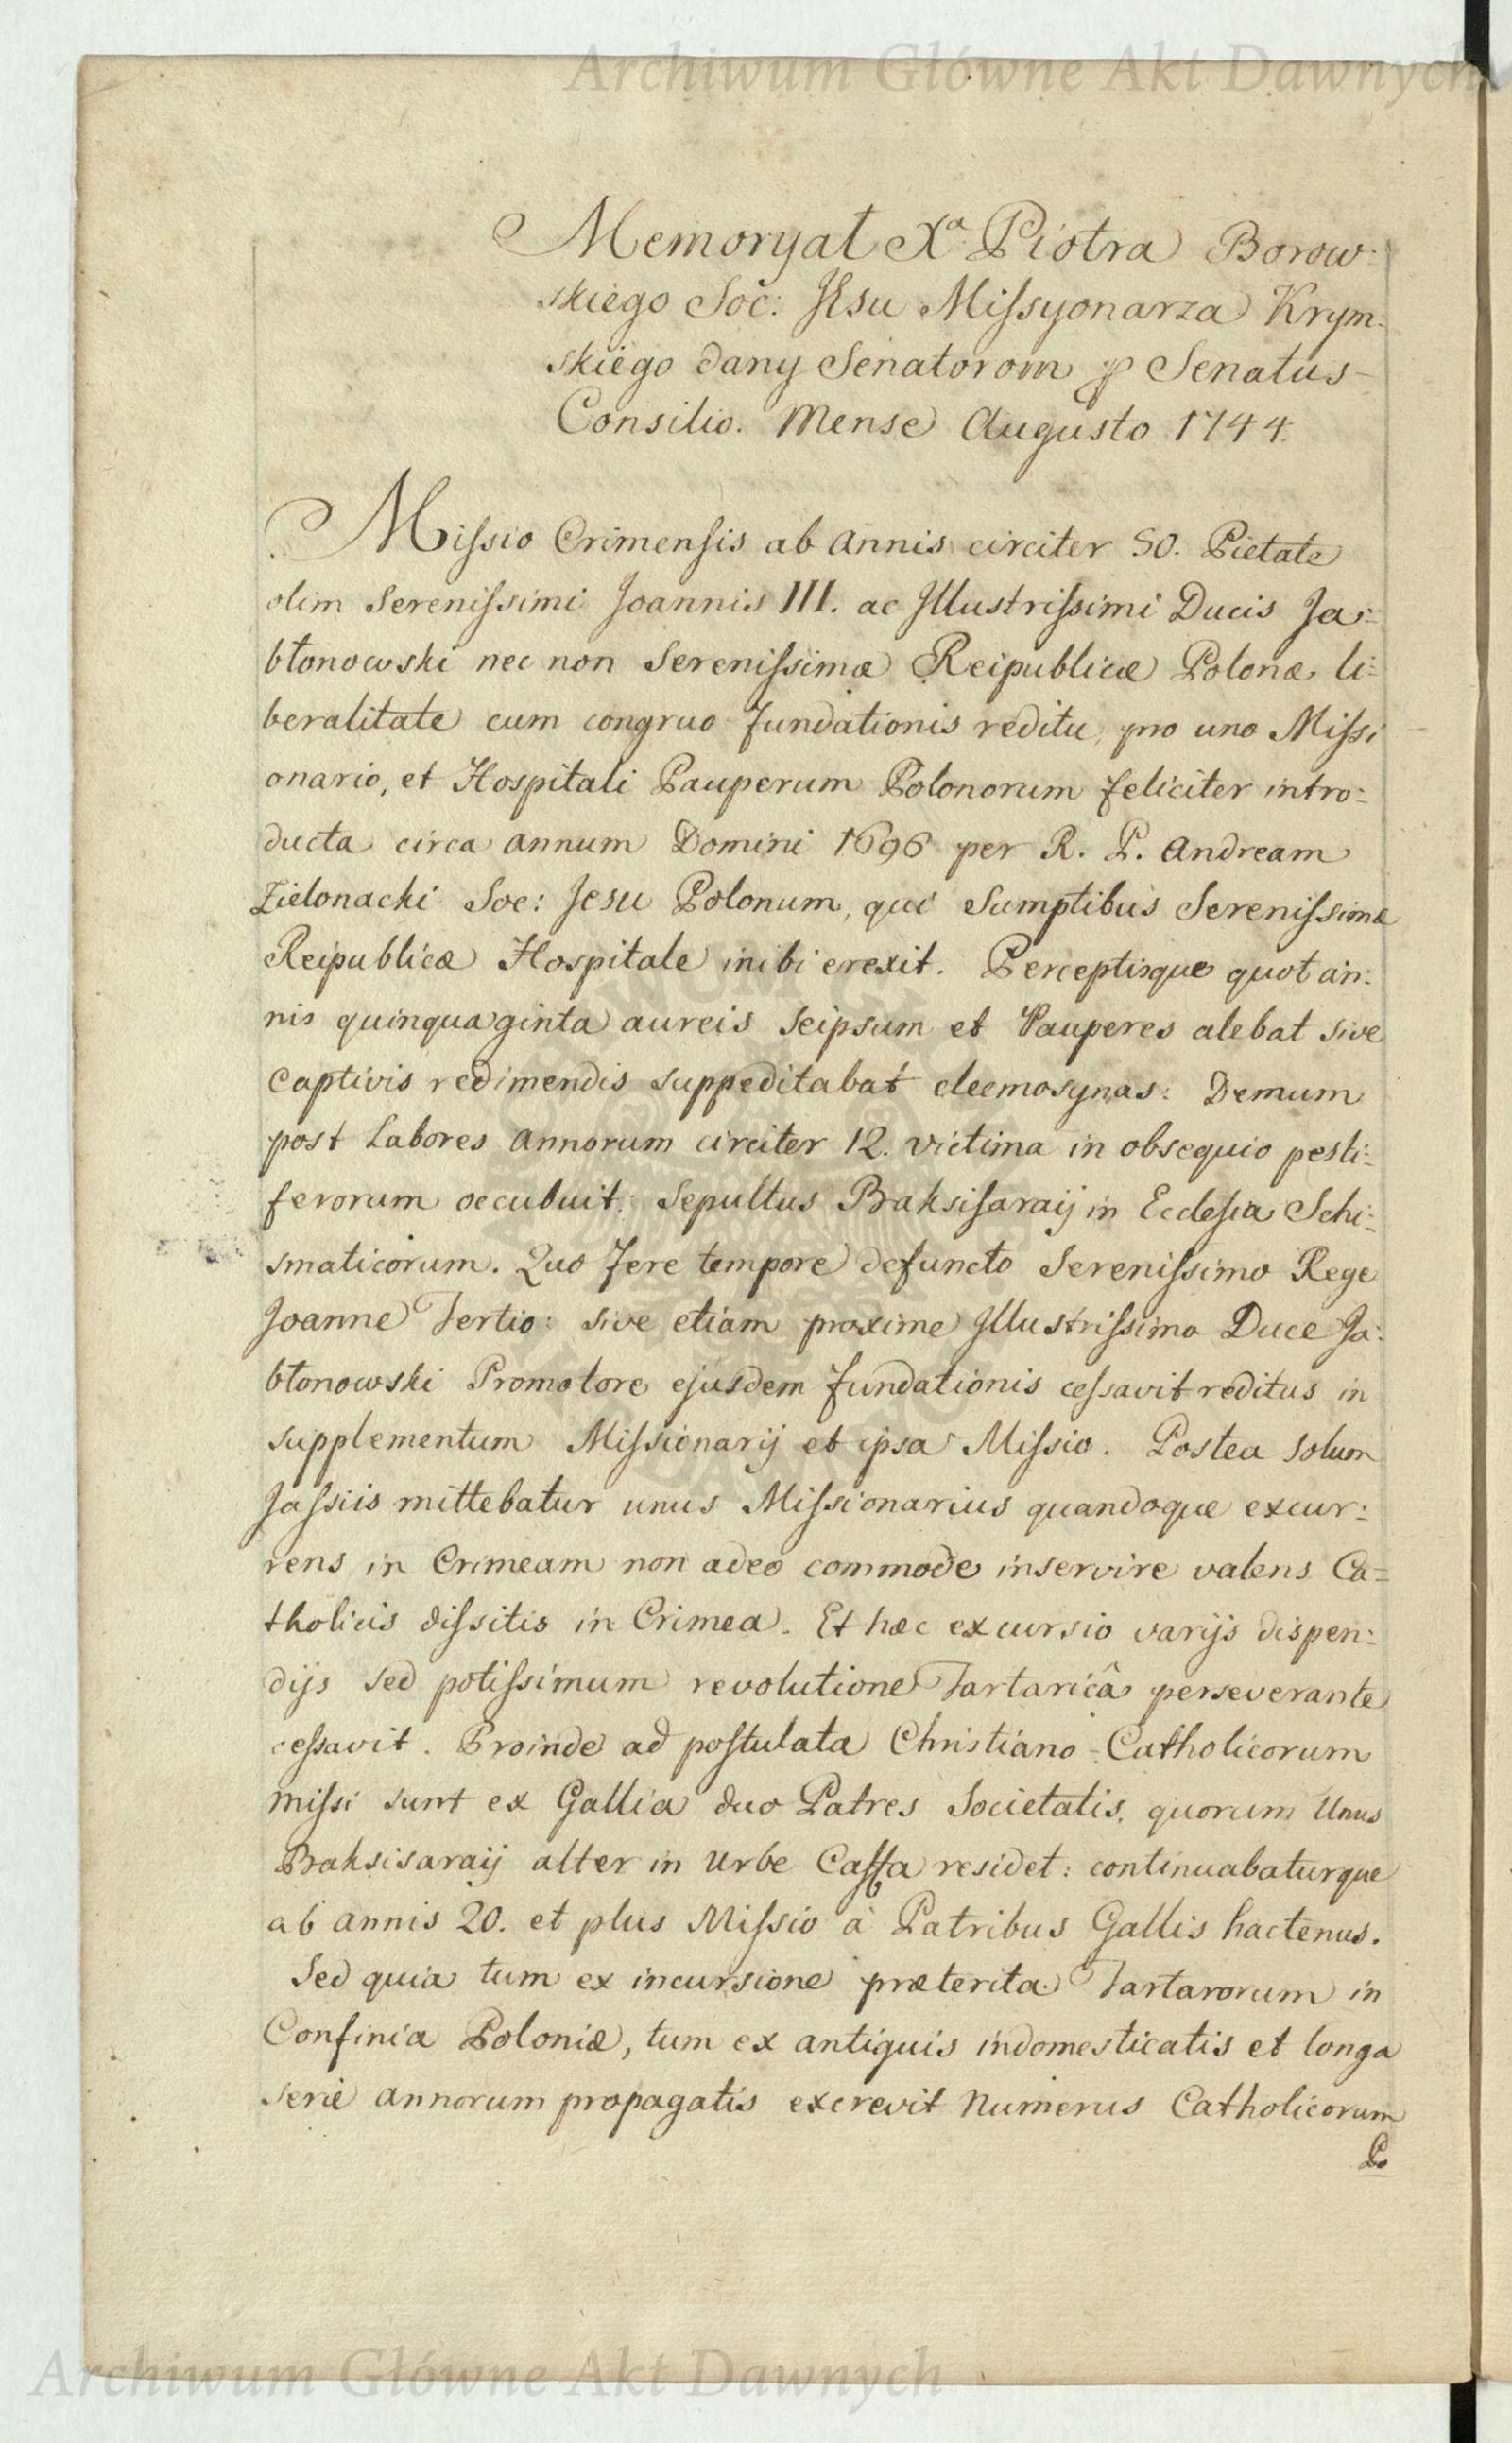 Archiwum Główne Akt Dawnych
Memoryał Xa Piotra Borow:
skiego Soc: JEsu Missyonarza Krym:
skiego dany Senatorom p Senatus
Consilio. Mense Augusto 1744.
Missio Crimensis ab annis circiter 50. Pietate
olim Serenissimi Joannis III. ac Jllustrissimi Ducis Ja:
błonowski nec non Serenissimæ Reipublicæ Polonæ li:
beralitate cum congruo fundationis reditu, pro uno Missi
onario, et Hospitali Pauperum Polonorum feliciter intro:
ducta circa annum Domini 1696 per R. P. Andream
Zielonacki Soc: Jesu Polonum, qui Sumptibus Serenissimæ
Reipublicæ Hospitale inibi erexit. Perceptisque quot an:
nis quinquaginta aureis Seipsum et Pauperes alebat sive
Captivis redimendis suppeditabat eleemosynas: Demum
post Labores annorum circiter 12. victima in obsequio pesti:
ferorum occubuit: Sepultus Baksisaraij in Ecclesia Schi:
smaticorum. Quo fere tempore defuncto Serenissimo Rege
Joanne Tertio: sive etiam proxime Jllustrissimo Duce Ja:
błonowski Promotore ejusdem fundationis cessavit reditus in
supplementum Missionarij et ipsa Missio. Postea solum
Jassiis mittebatur unus Missionarius quandoque excur:
rens in Crimeam non adeo commode inservire valens Ca=
tholicis dissitis in Crimea. Et hæc excursio varijs dispen:
dijs sed potissimum revolutione Tartaricâ perseverante
cessavit. Proinde ad postulata Christiano-Catholicorum
missi sunt ex Gallia duo Patres Societatis. quorum Unus
Baksisaraij alter in Urbe Caffa residet: continuabaturque
ab annis 20. et plus Missio à Patribus Gallis hactenus.
Sed quia tum ex incursione præterita Tartarorum in
Confinia Poloniæ, tum ex antiquis indomesticatis et longa
serie annorum propagatis excrevit Numerus Catholicorum
Po
Archiwum Główne Akt Dawnych